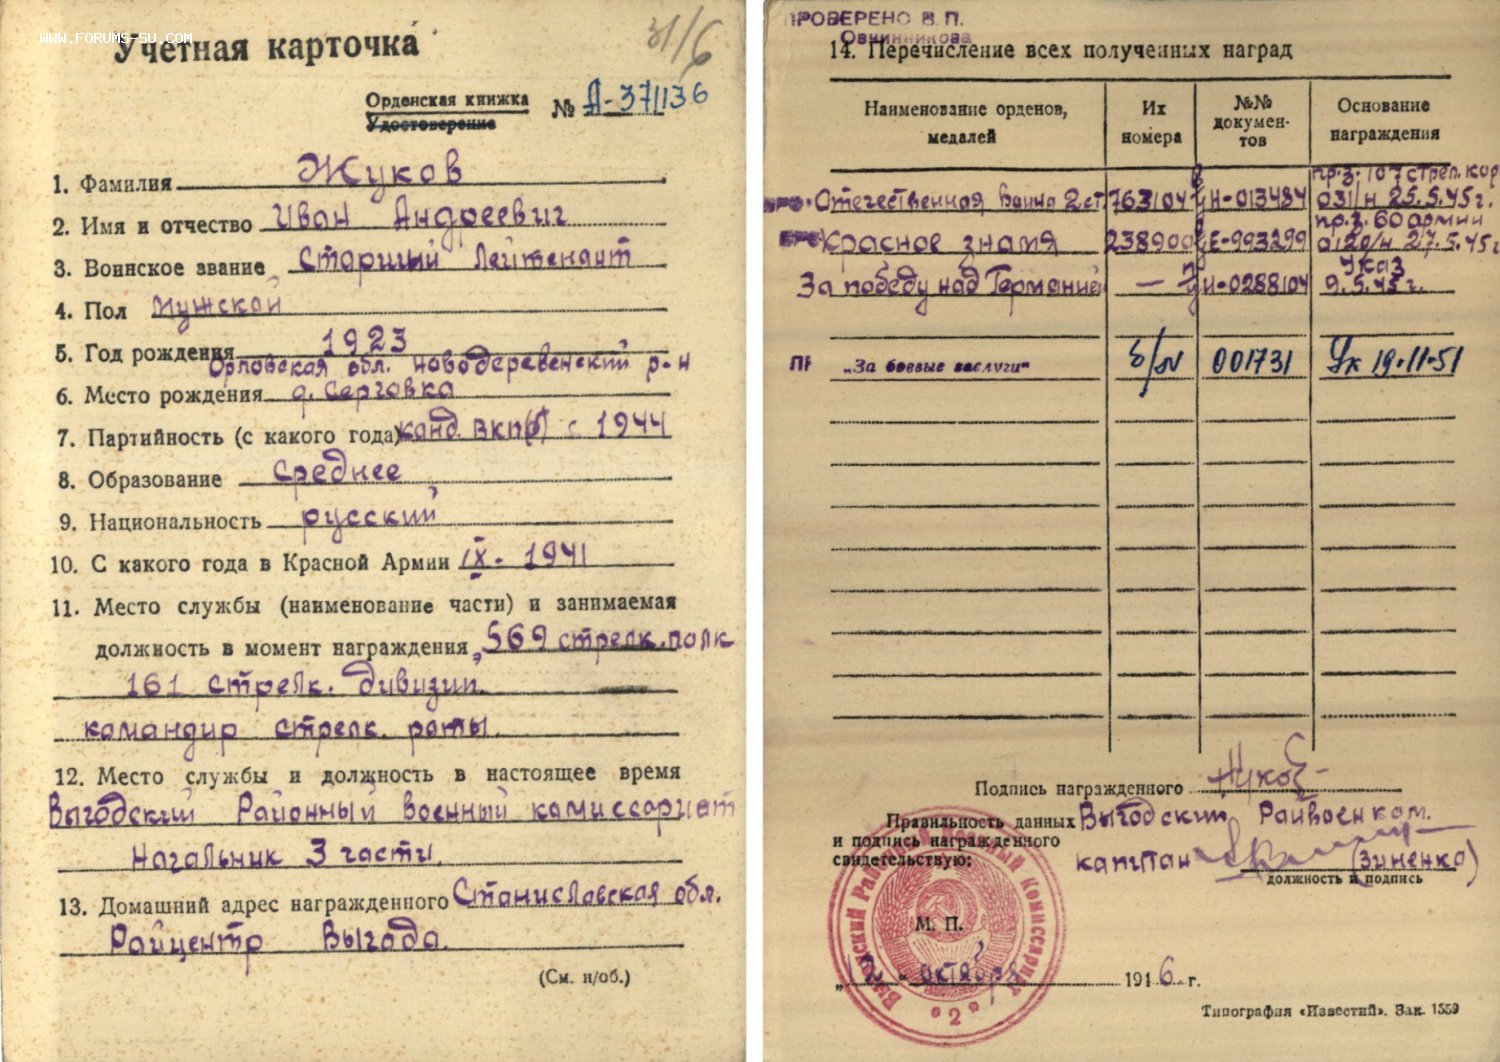 WWW.FORUMS-SU.COM
31/6
Учетная карточка
Орденская книжка
Удостоверение
№ А-371136
1. Фамилия Жуков
2. Имя и отчество Иван Андреевич
3. Воинское звание Старший Лейтенант
4. Пол мужской
5. Год рождения 1923
Орловская обл. Новодеревенский р-н
6. Место рождения д. Серговка
7. Партийность (с какого года) канд. ВКП(б) с 1944
8. Образование среднее
9. Национальность русский
10. С какого года в Красной Армии IX - 1941
11. Место службы (наименование части) и занимаемая
должность в момент награждения 569 стрелк. полк
161 стрелк. дивизии
командир стрелк. роты.
12. Место службы и должность в настоящее время
Выгодский Районный военный комиссариат
Начальник 3 части.
13. Домашний адрес награжденного Станиславская обл.
Райцентр Выгода.
(См. н/об.)
ПРОВЕРЕНО В. П.
Овчинникова
14. Перечисление всех полученных наград
Наименование орденов, медалей
Их номера
№№ документов
Основание награждения
Отечественная Война 2 ст 763104 Н-013484 пр-з: 107 стрел. кор 031/н 25.5.45г.
Красное знамя 238900 Е-993299 пр-з. 60 армии 0120/н 27.5.45г
За победу над Германией — Н-0288104 Указ 9.5.45г.
„За боевые заслуги“ б/н 001731 Ук 19-11-51
Подпись награжденного Жуков
Правильность данных Выгодский Райвоенком.
и подпись награжденного
свидетельствую: капитан (Зиненко)
должность и подпись
Выгодский Районный Военный Комиссариат
2
М. П.
„12“ октября 1946 г.
Типография «Известий». Зак. 1559